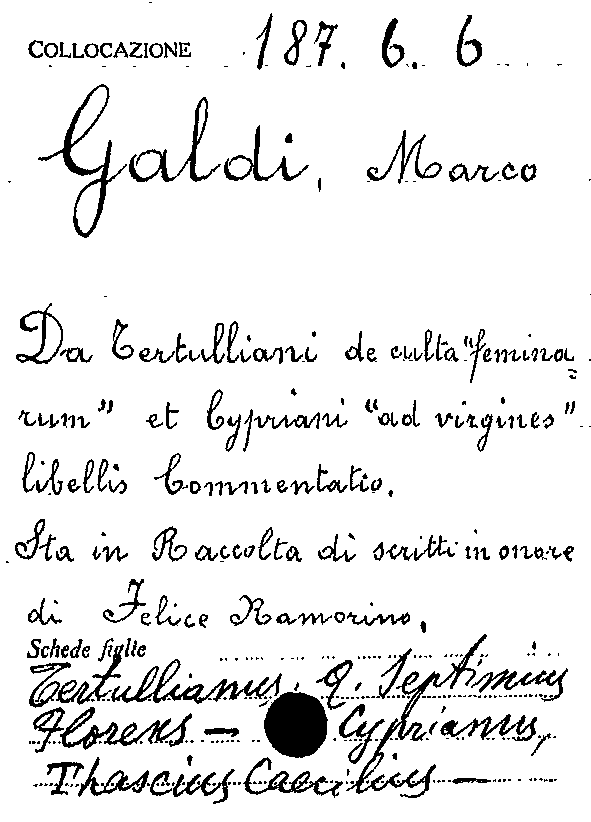 COLLOCAZIONE 187. 6. 6
Galdi, Marco
Da Tertulliani de culta "femina
rum" et Cypriani "ad virgines"
libellis Commentatio.
Sta in Raccolta di scritti in onore
di Felice Ramorino.
Schede figlie
Tertullianus, Q. Septimius
Florens — Cyprianus,
Thascius Caecilius —